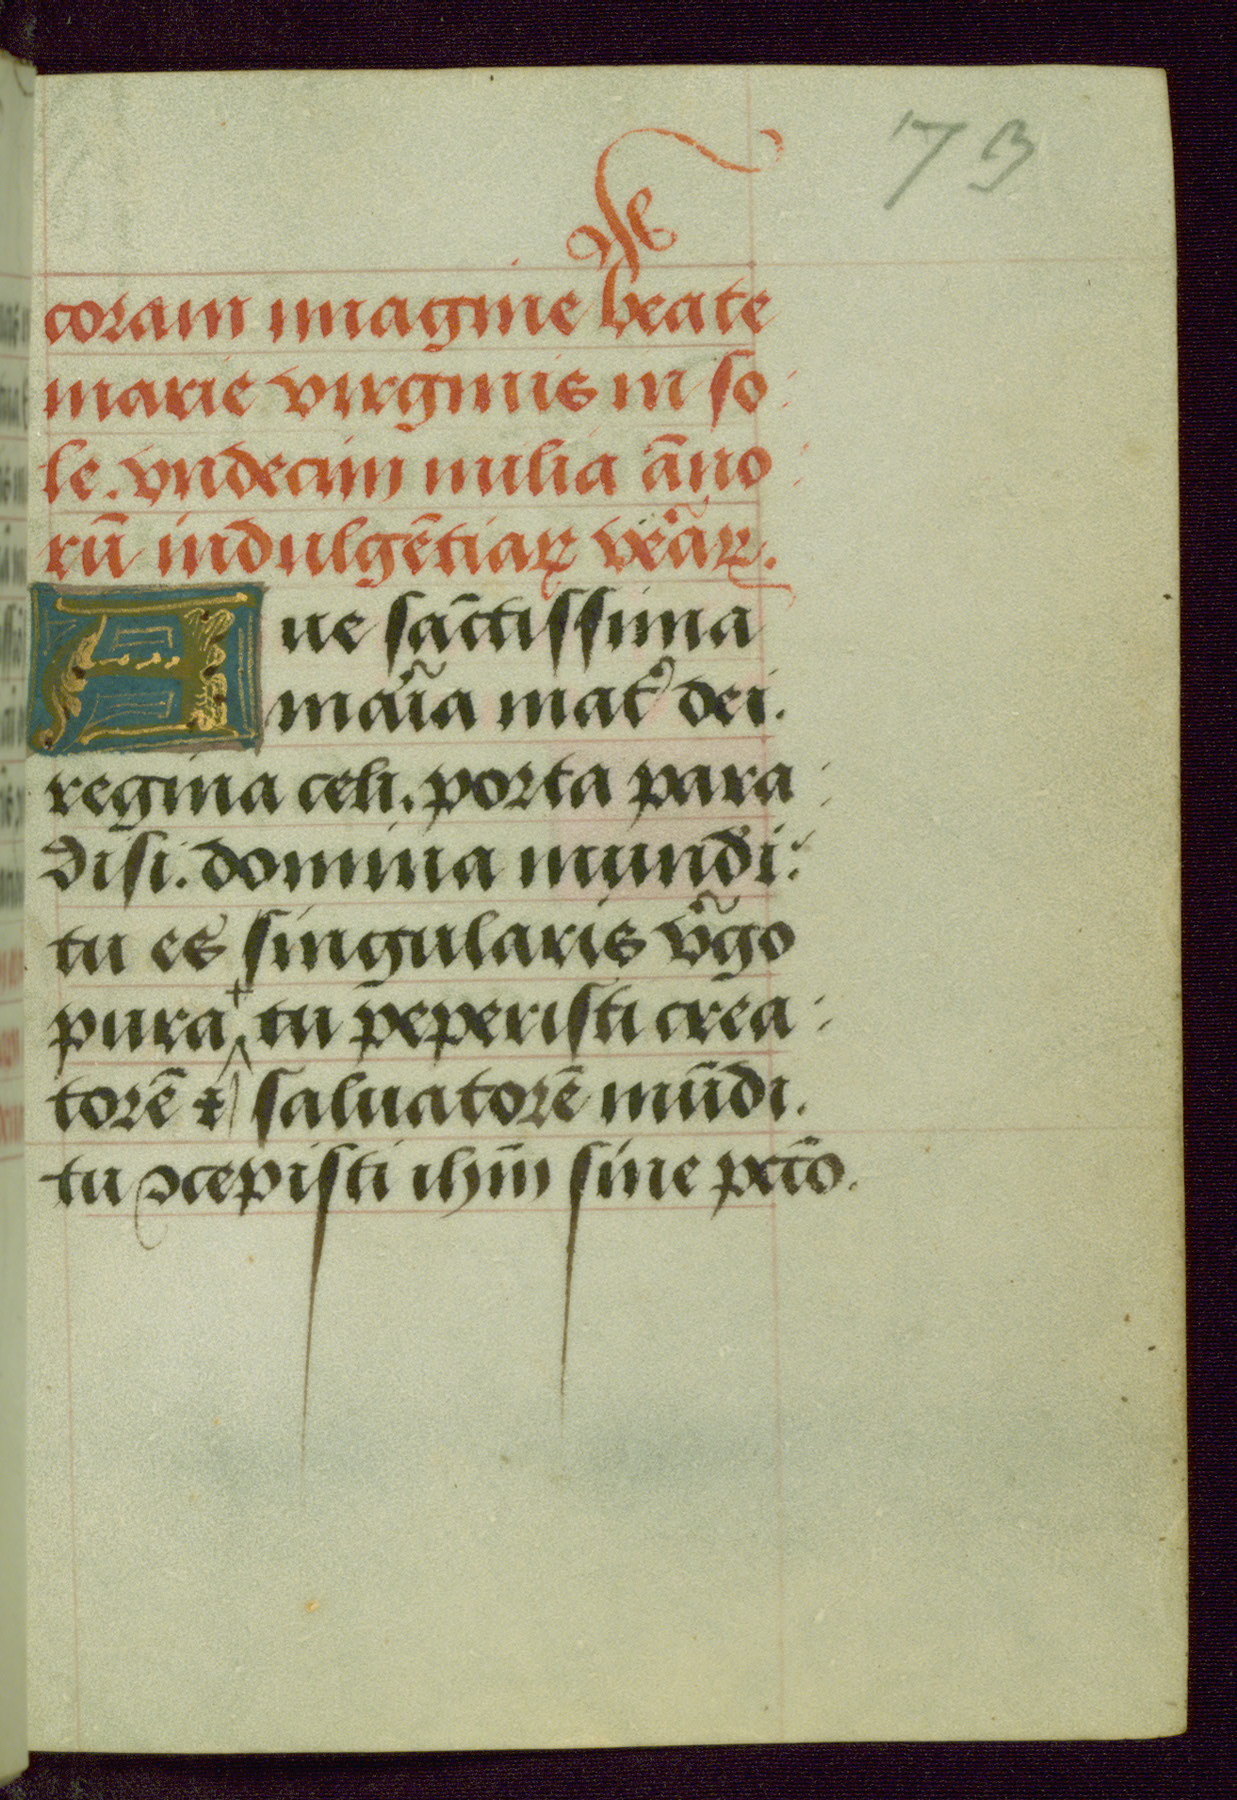 73
coram imagine beate
marie virginis in so
le. vndecim milia āno
rū indulgētiaꝝ veraꝝ.
Aue sāctissima
maria mat̾ dei.
regina celi. porta para
disi. domina mundi:
tu es singularis v̾go
pura + tu peperisti crea
torē ⁊ saluatorē mūdi.
tu ↄcepisti ihm̄ sine pctō.